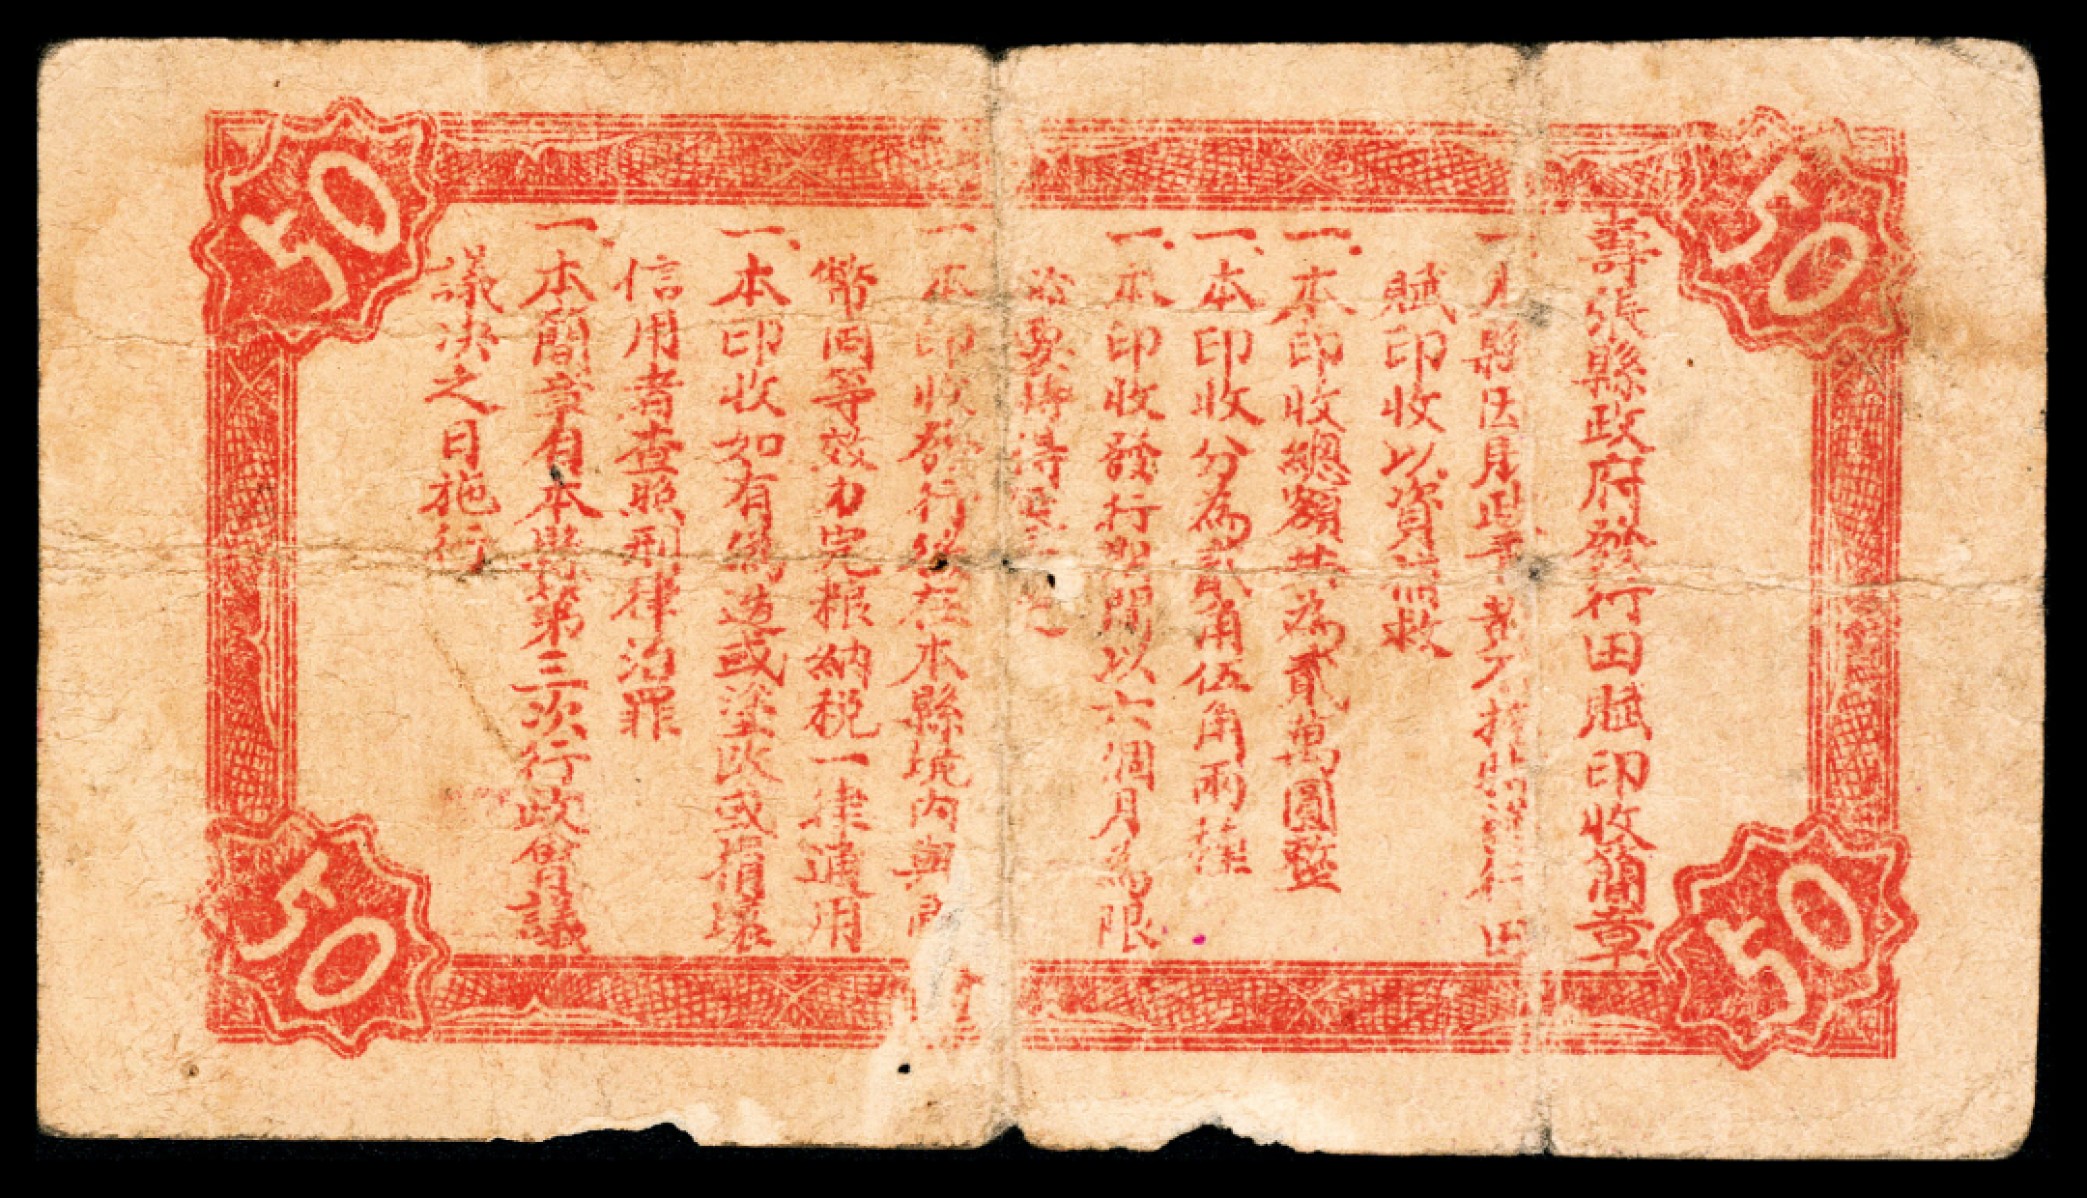 50
50
壽張縣政府發行田賦印收簡章
一、本縣因財政 行田
賦印收以資 救
一、本印收總額共為貳萬圓整
一、本印收分為貳角伍角兩種
一、本印收發行期間以六個月為限
一、本印收發行後在本縣境内與
幣同等效力完粮納税一律通用
一、本印收如有偽造或塗改或損壞
信用者查照刑律治罪
一、本簡章自本縣第三次行政會議
議决之日施行
50
50